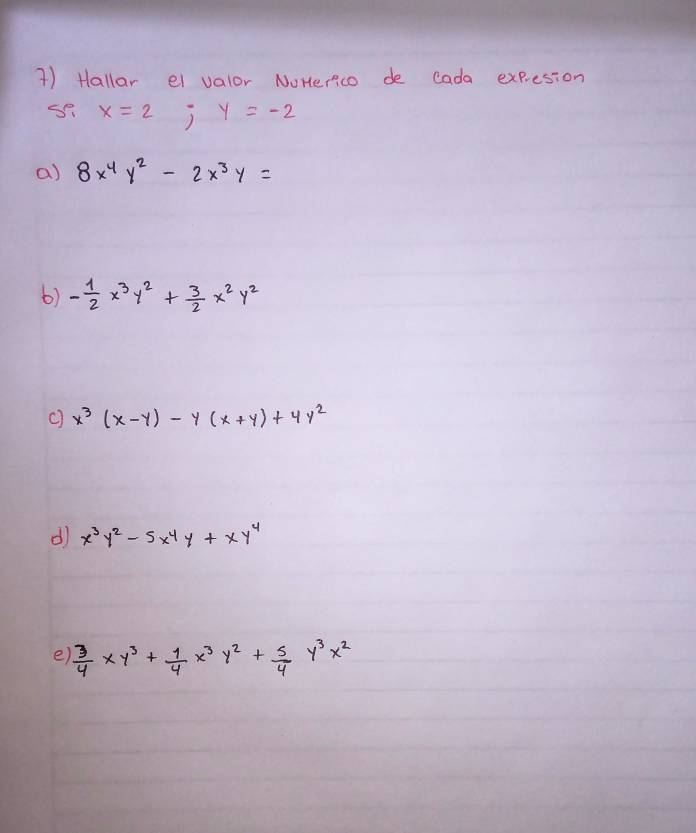 7) Hallar el valor Numerico de cada expresion
Si x = 2 ; y = -2
a) 8x⁴y² - 2x³y =
b) -1/2 x³y² + 3/2 x²y²
c) x³ (x-y) - y (x+y) + 4y²
d) x³y² - 5x⁴y + xy⁴
e) 3/4 xy³ + 1/4 x³y² + 5/4 y³x²